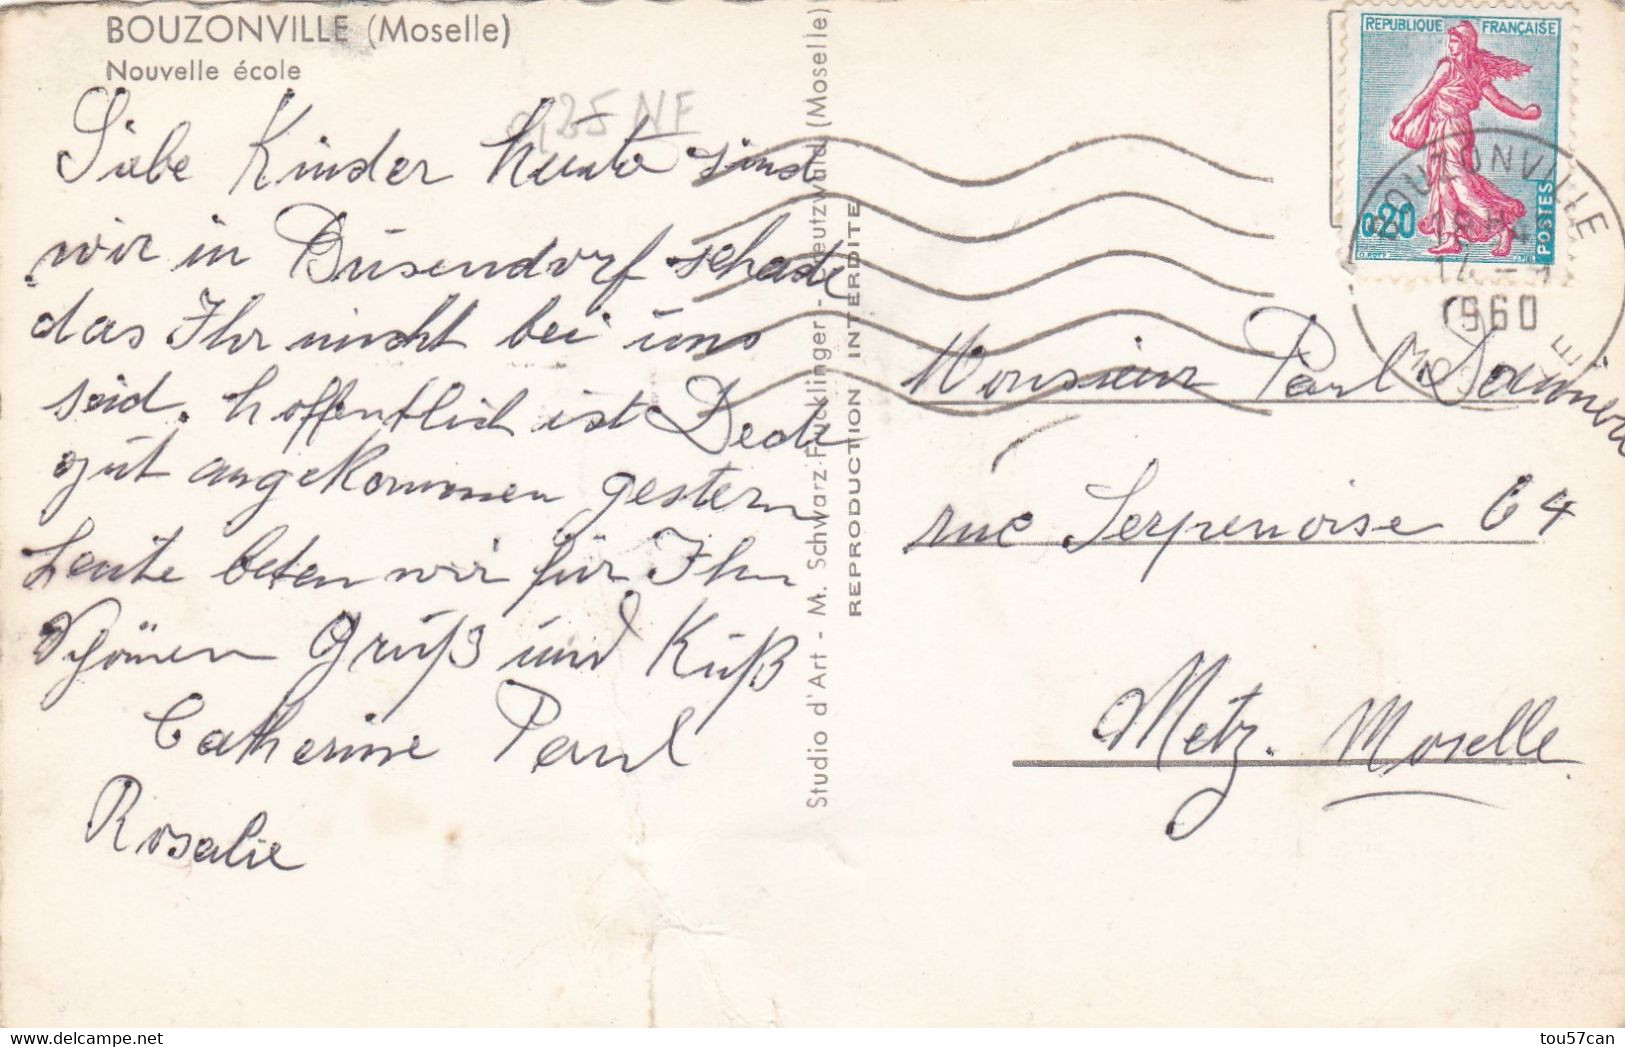 BOUZONVILLE (Moselle)
Nouvelle école
0,25 NF
Liebe Kinder heute sind
wir in Busendorf schade
das Ihr nicht bei uns
seid. hoffentlich ist Dede
gut angekommen gestern
Leute beten wir für Ihn
Schönen Gruß und Kuß
Catherine Paul
Rosalie
Studio d'Art - M. Schwarz-Fücklinger - Creutzwald (Moselle)
REPRODUCTION INTERDITE
REPUBLIQUE FRANÇAISE
0,20
POSTES
BOUZONVILLE
1960
Monsieur Paul
rue Serpenoise 64
Metz. Moselle
tou57can